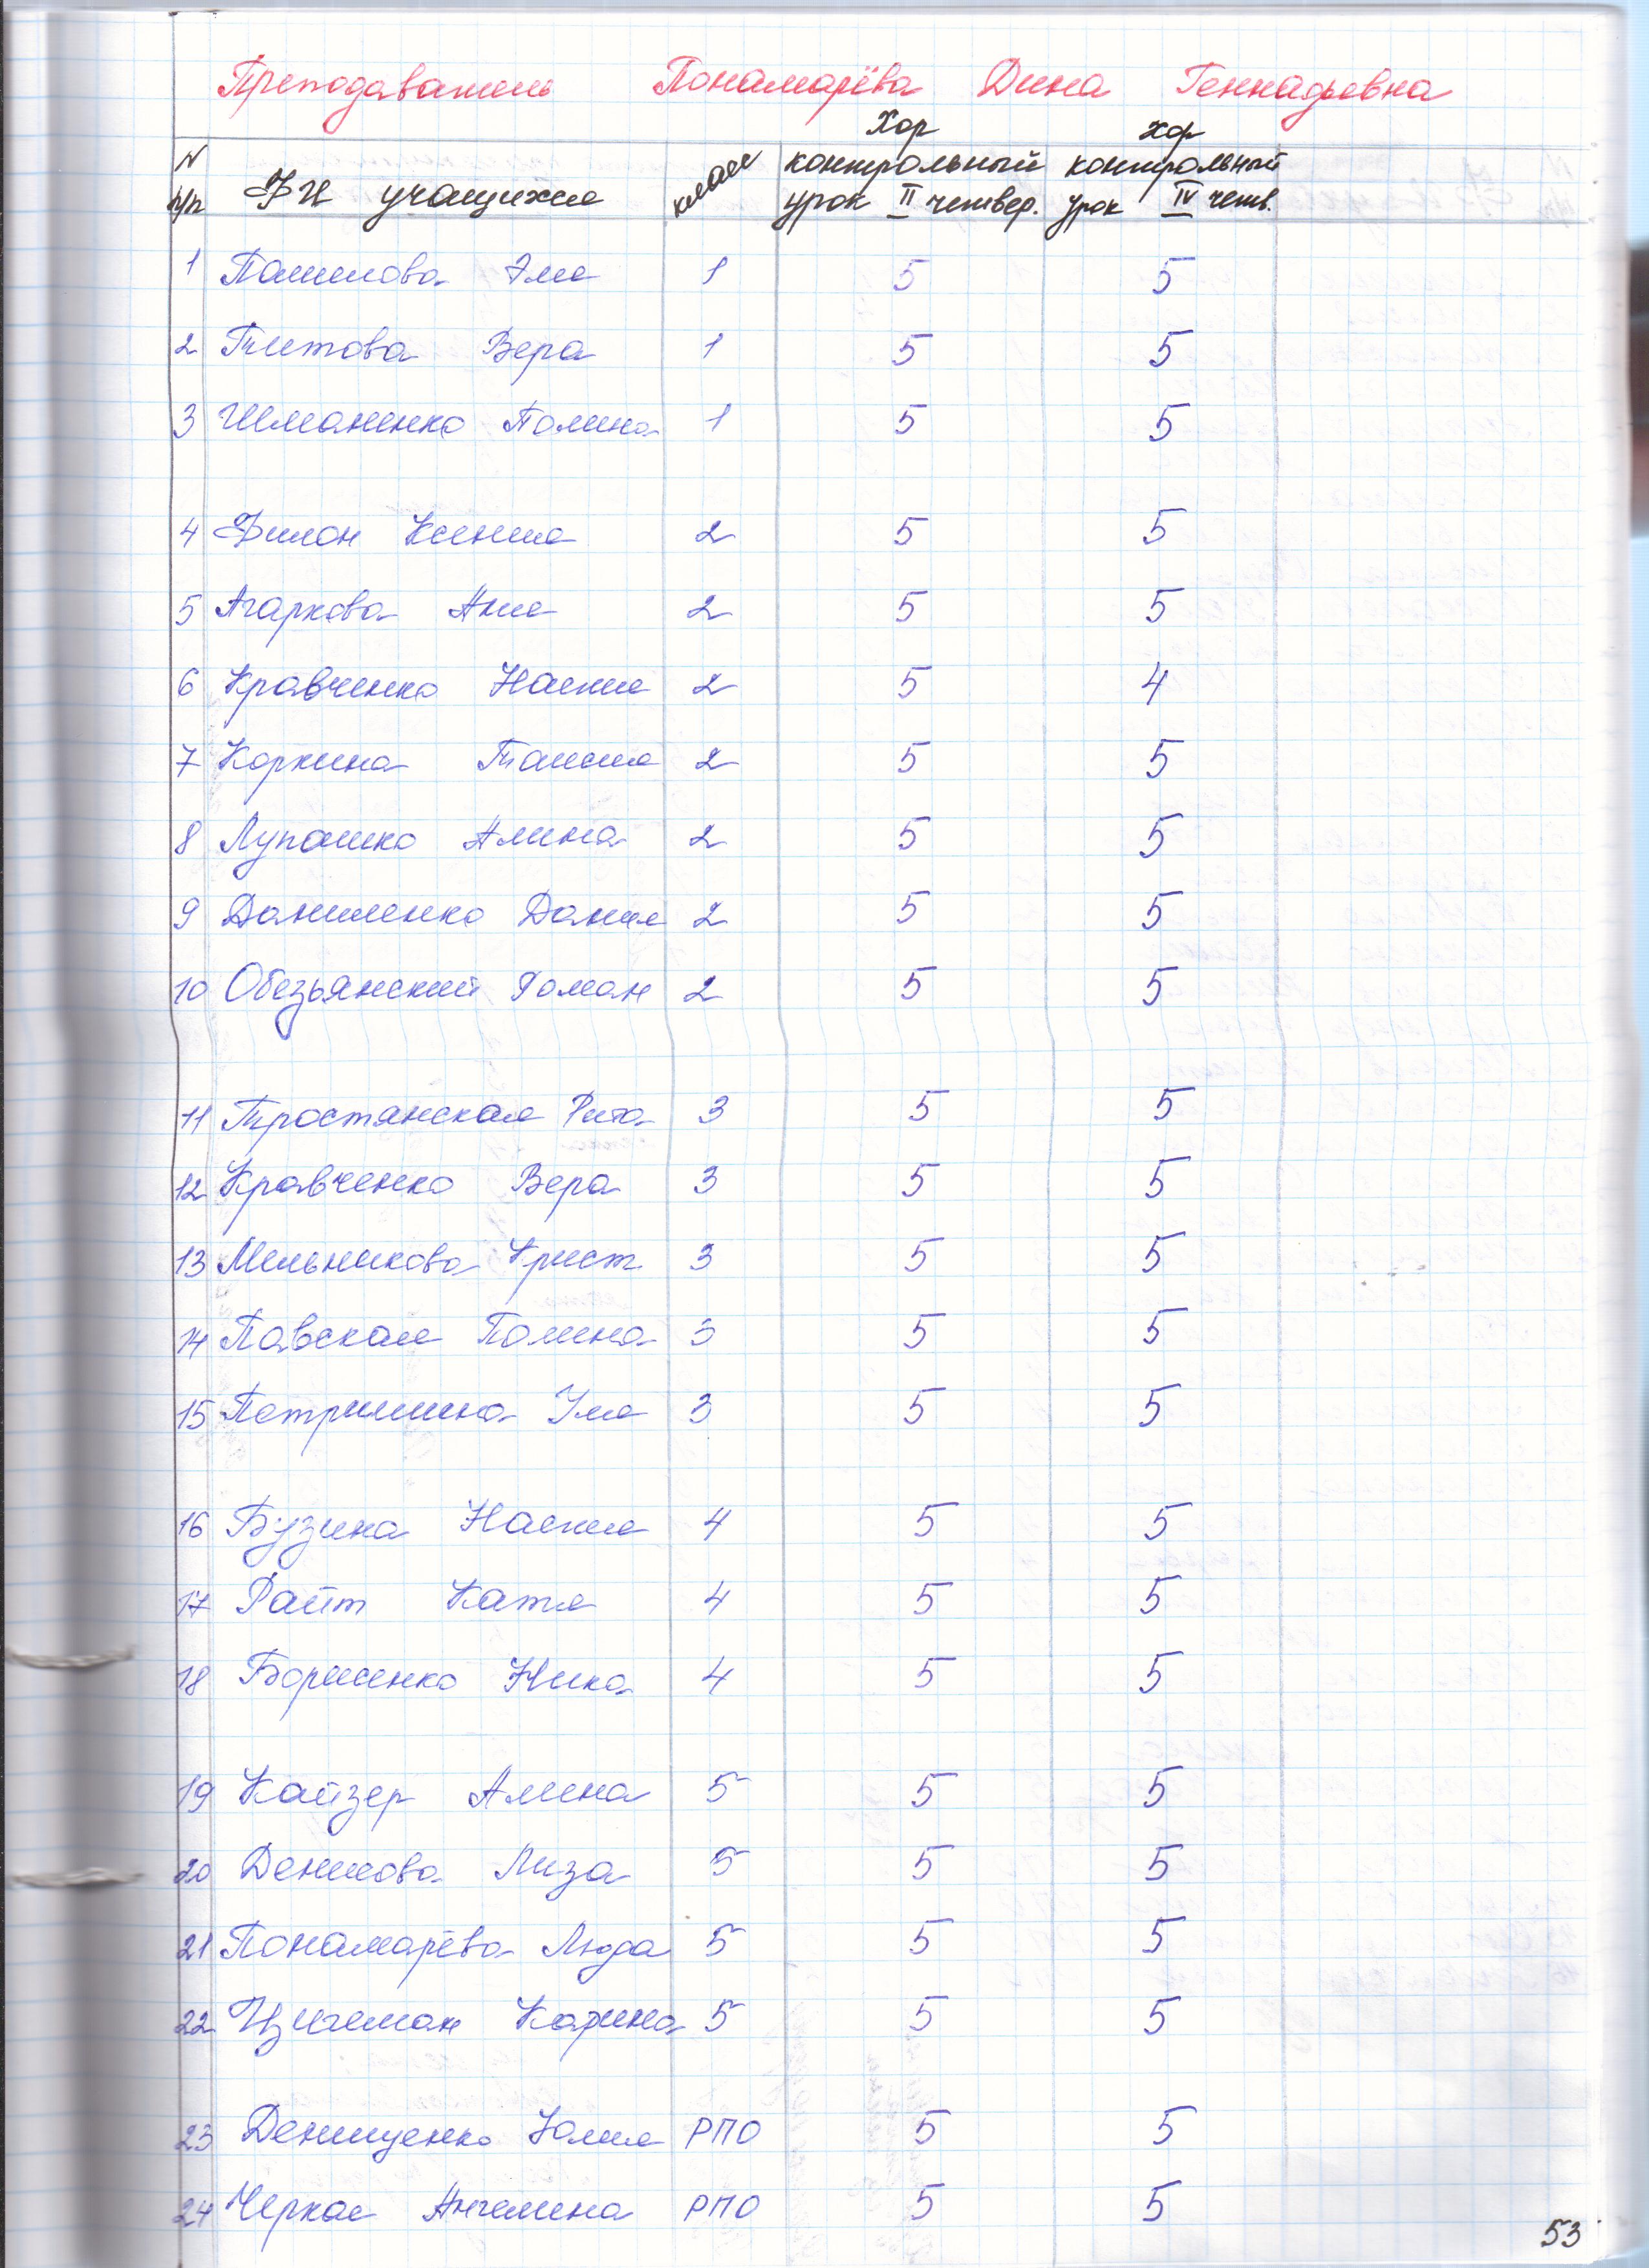 Преподаватель Понамарёва Дина Геннадьевна
N п/п ФИ учащихся класс Хор контрольный урок II четвер. хор контрольный урок IV четв.
1 Эля 1 5 5
2 Титова Вера 1 5 5
3 Шманенко Полина 1 5 5
4 Филон Ксения 2 5 5
5 Агаркова Аня 2 5 5
6 Кравченко Настя 2 5 4
7 Коркина Таисия 2 5 5
8 Лупашко Алина 2 5 5
9 Даниленко Данил 2 5 5
10 Обезьянский Роман 2 5 5
11 Тростянская Рита 3 5 5
12 Кравченко Вера 3 5 5
13 Мельникова Крист. 3 5 5
14 Павская Полина 3 5 5
15 3 5 5
16 Бузина Настя 4 5 5
17 Райт Катя 4 5 5
18 Борисенко Ника 4 5 5
19 Кайзер Алина 5 5 5
20 Денисова Лиза 5 5 5
21 Понамарёва Люда 5 5 5
22 Карина 5 5 5
23 Денищенко Юлия РПО 5 5
24 Черкас Ангелина РПО 5 5
53